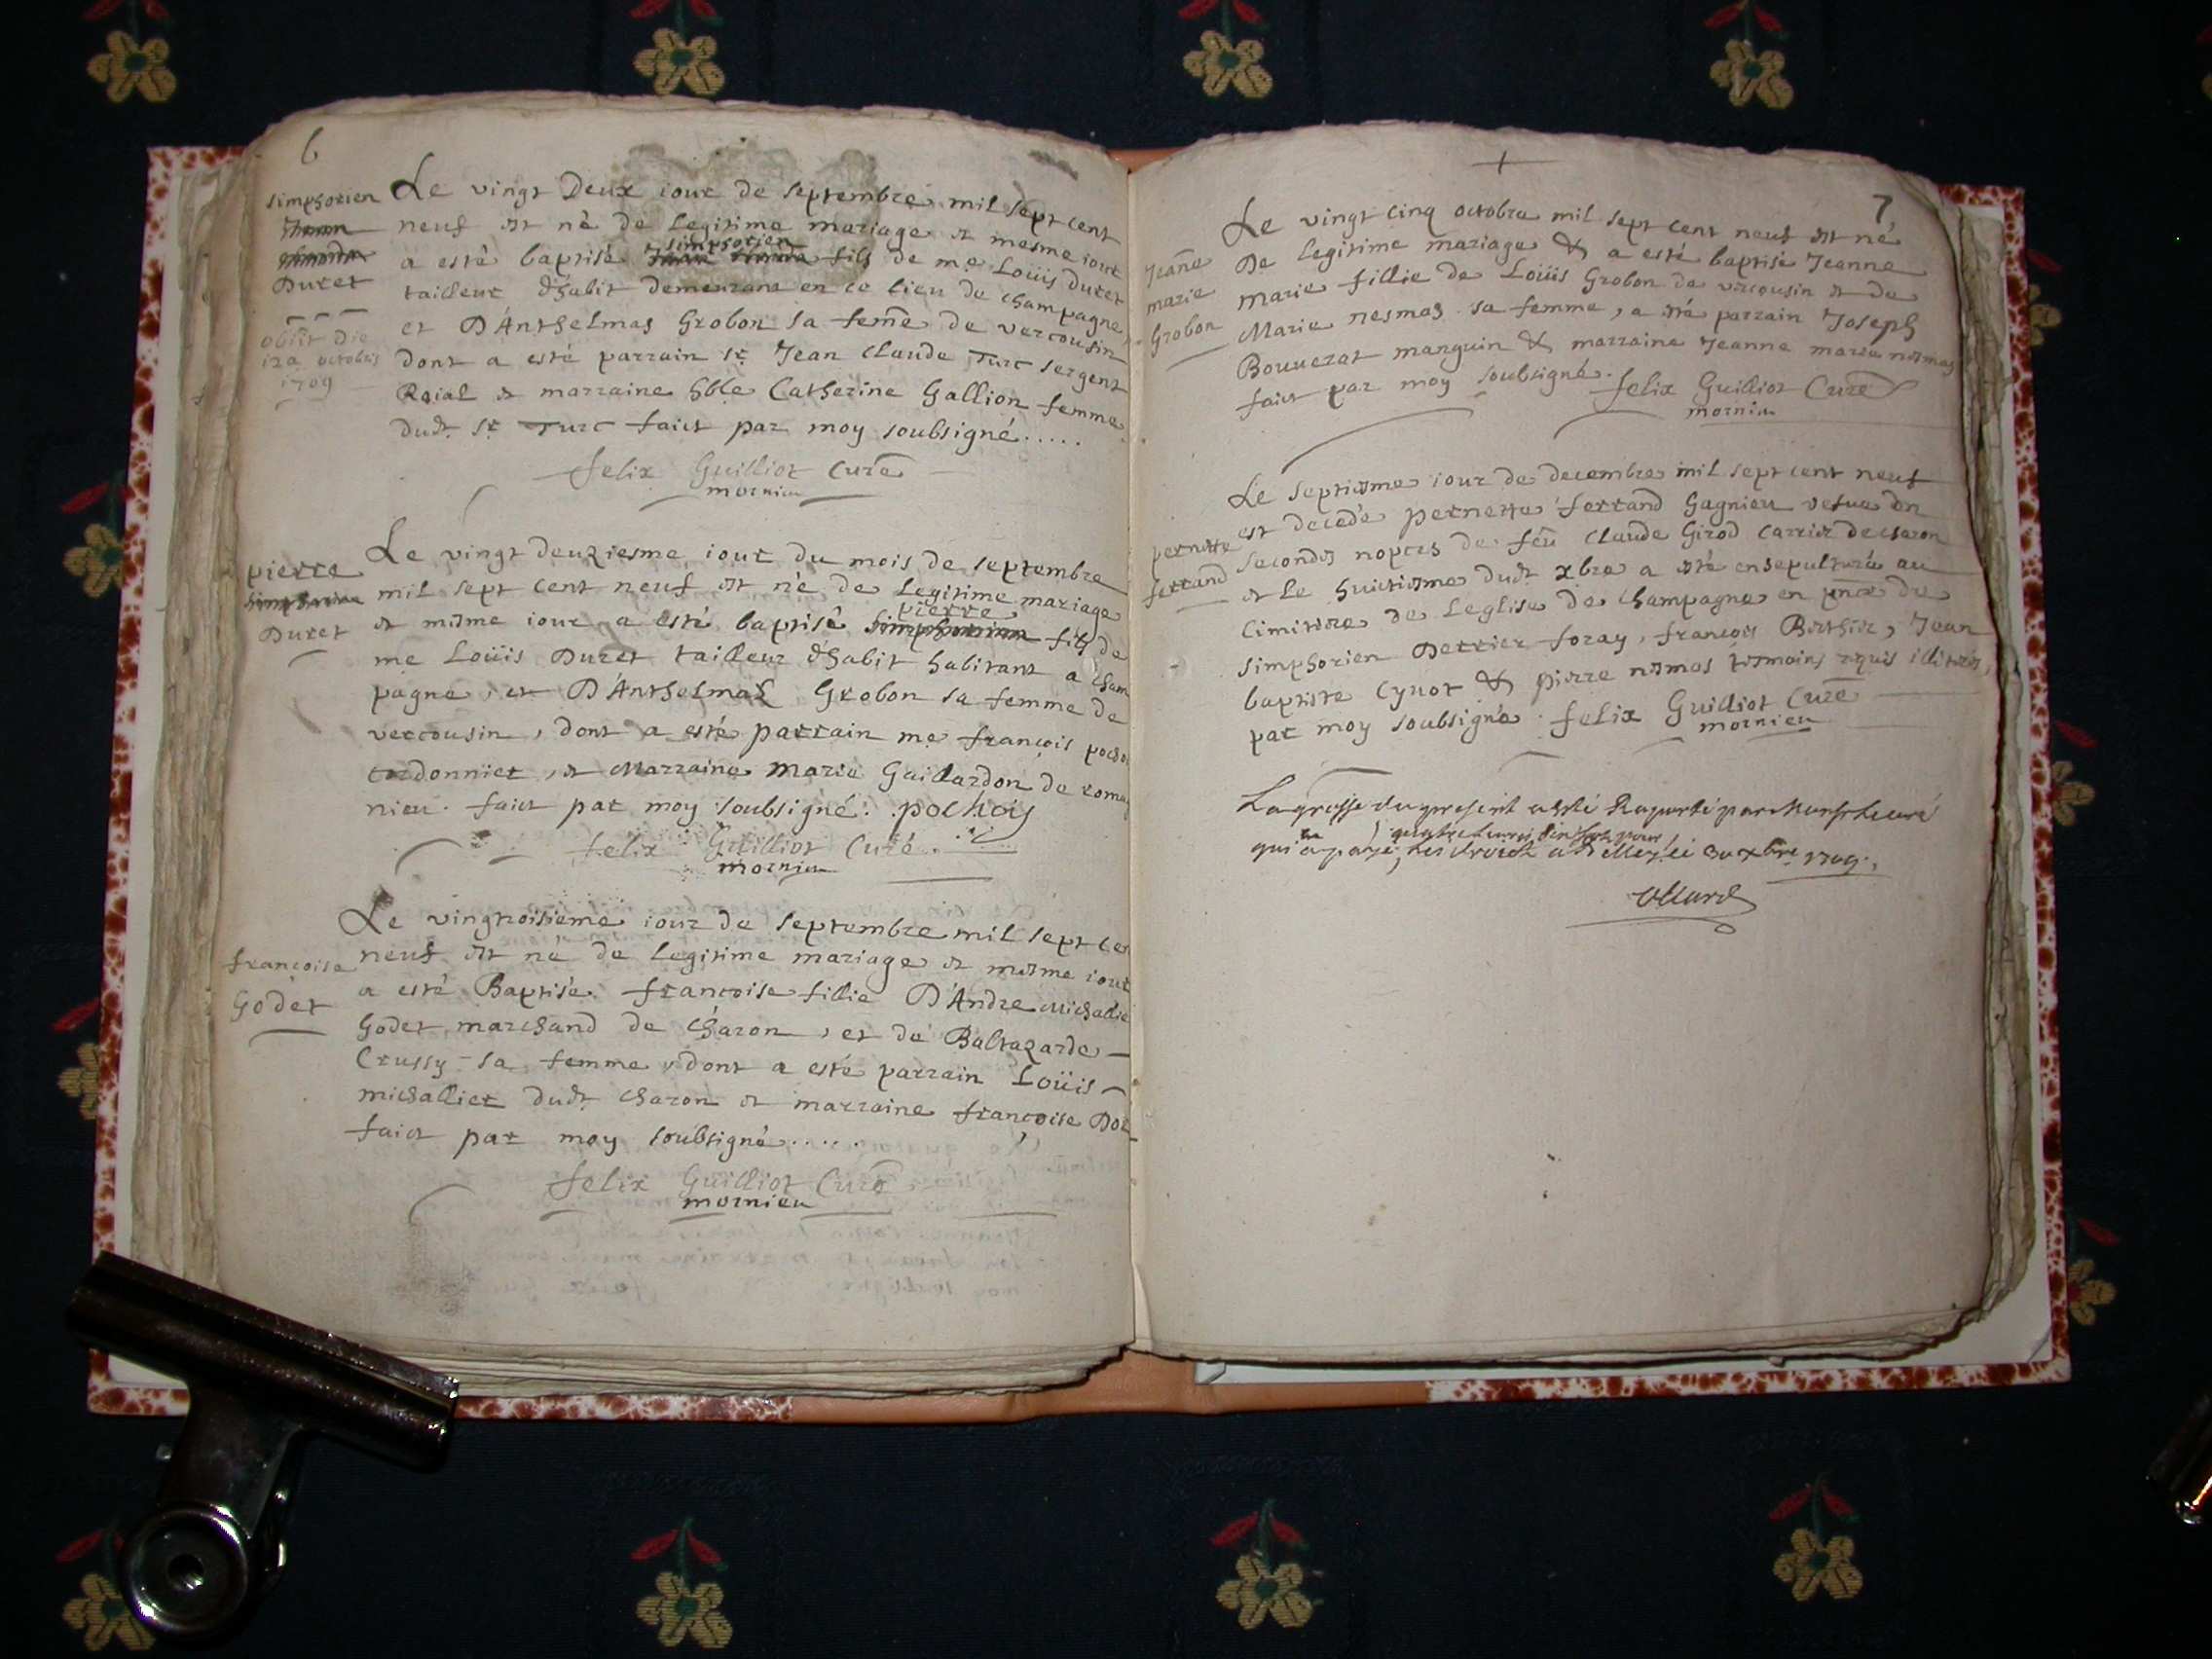 6
simphorien
Duret
obiit die
12a octobris
1709
Le vingt Deux iour de septembre mil sept cent
neuf est né de legitime mariage et mesme iour
a esté baptisé simphorien fils de me Loüis Duret
tailleur dhabit demeurant en ce lieu de champagne
et D'Anthelmas Grobon sa femē de vercousin
dont a esté parrain sr Jean claude Turc sergent
Roial et marraine hble Catherine Gallion femme
dudt sr Turc faict par moy soubsigné.....
felix Guilliot Curé
mornieu
pierre
simphorien
Duret
Le vingt deuxiesme iour du mois de septembre
mil sept cent neuf est né de legitime mariage
et mesme iour a esté baptisé simphorien pierre fils de
me Loüis Duret tailleur dhabit habitant a cham
pagne, et D'Anthelmas Grobon sa femme de
vercousin, dont a esté parrain me françois pocho
cordonnier, et Marraine Marie Gaillardon de roma
nieu. faict par moy soubsigné. pochoy
felix Guilliot Curé
mornieu
françoise
Godet
Le vingtroisieme iour de septembre mil sept ce
neuf est né de legitime mariage et mesme iour
a esté Baptisée françoise fillie D'Andre Michallie
Godet marchand de charon, et de Baltazarde
Crussy sa femme, dont a esté parrain Loüis
michallier dudt charon et marraine françoise Dor
faict par moy soubsigné.....
felix Guilliot Curé
mornieu
7
Jeañe
marie
Grobon
Le vingt cinq octobre mil sept cent neuf est né
De legitime mariage & a esté baptisé Jeanne
Marie fillie de Loüis Grobon de vircousin et de
Marie nesmos sa femme, a esté parrain Joseph
Bouuerat manguin & marraine Jeanne marie nesmos
faict par moy soubsigné. felix Guilliot Curé
mornieu
pernette
ferrand
Le septiesme iour de decembre mil sept cent neuf
est decedé pernette ferrand Gagnieu vefue en
secondes nopces de feü claude Girod Carrier de charon
et le huictiesme dudt xbre a esté ensepulturée au
cimitiere de Leglise de champagne en pnce de
simphorien Derrier foray, françois Berthier, Jean
baptiste Cynot & pierre nesmos tesmoins requis illiteres,
par moy soubsigné. felix Guilliot Curé
mornieu
La grosse du present a esté Raporté par Monsr le curé
qui a payé les droits a Belley ce 30 xbre 1709.